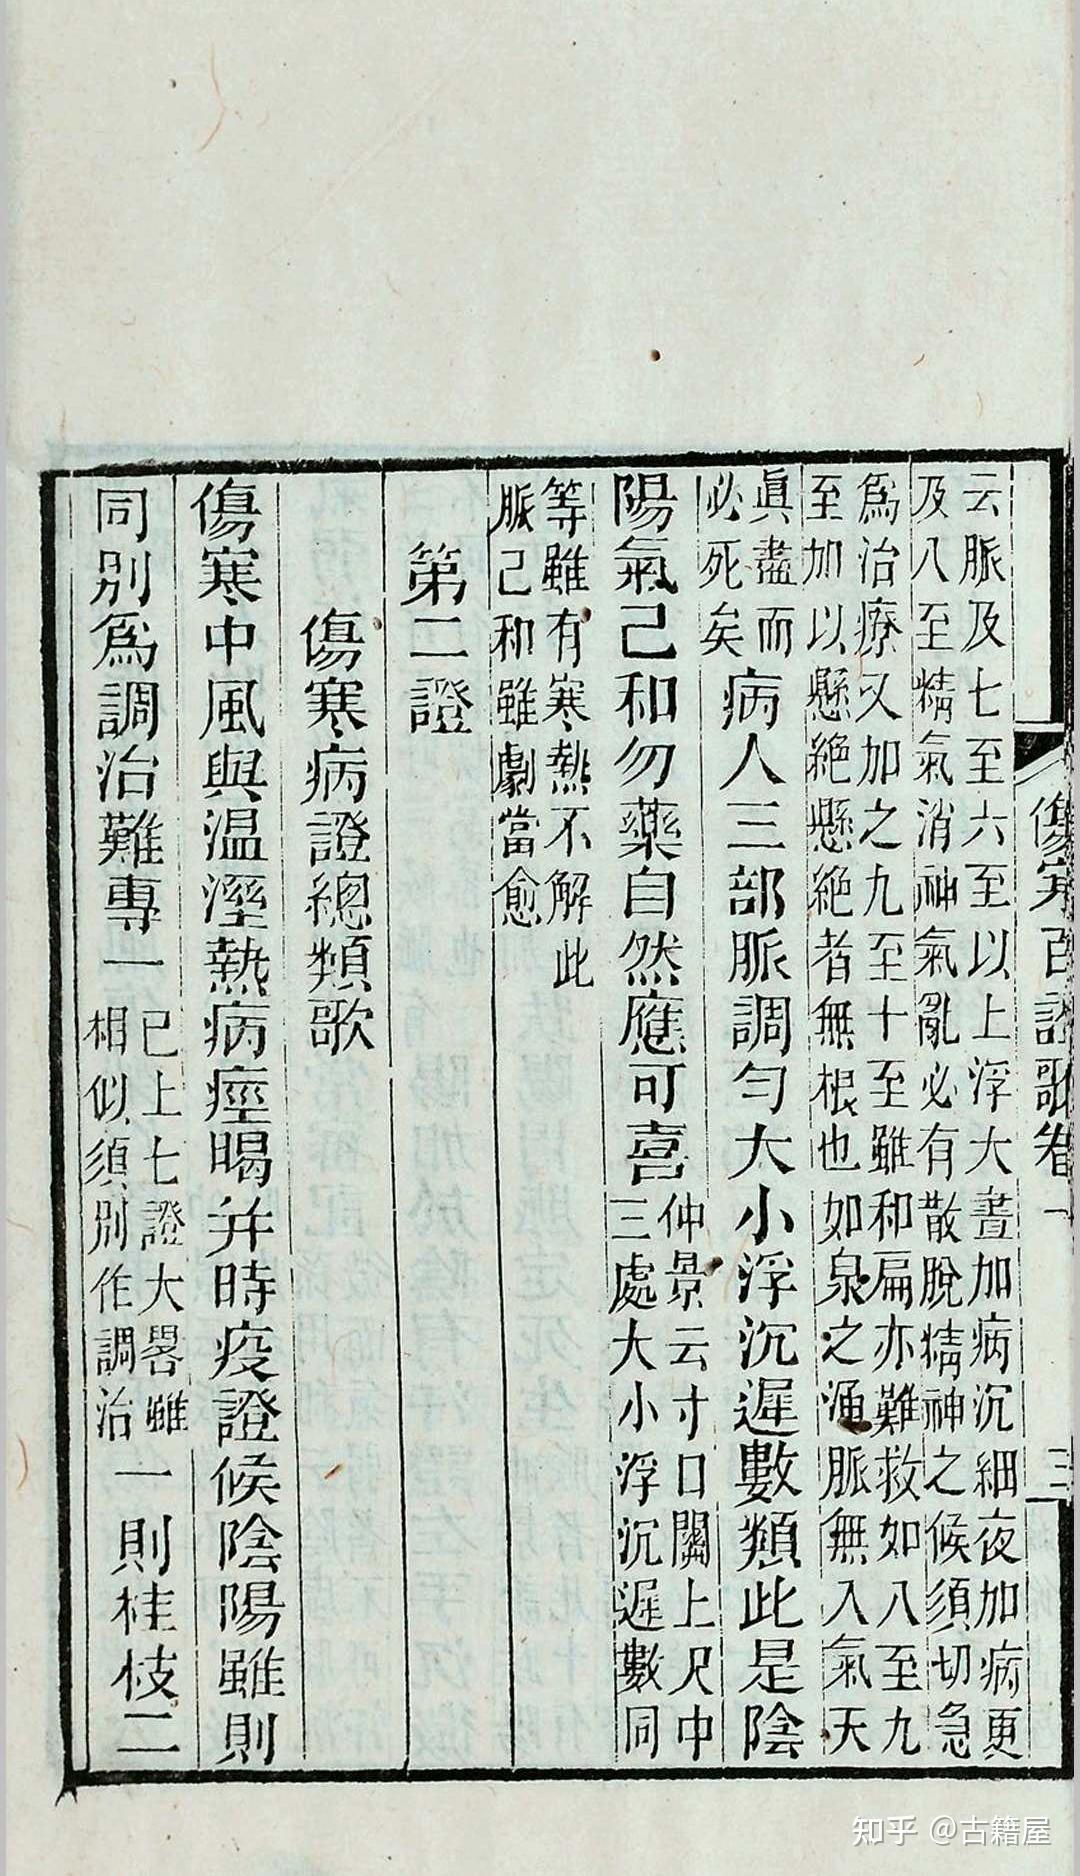 傷寒百證歌卷一 三
云脈及七至六至以上浮大晝加病沉細夜加病更
及八至精氣消神氣亂必有散脫精神之候須切急
爲治療又加之九至十至雖和扁亦難救如八至九
至加以懸絕懸絕者無根也如泉之涌脈無入氣天
眞盡而
必死矣
病人三部脈調勻大小浮沉遲數類此是陰
陽氣已和勿藥自然應可喜
仲景云寸口關上尺中
三處大小浮沉遲數同
等雖有寒熱不解此
脈已和雖劇當愈
第二證
傷寒病證總類歌
傷寒中風與温溼熱病痙暍并時疫證候陰陽雖則
同別爲調治難專一
已上七證大畧雖
相似須別作調治
一則桂枝二
知乎 @古籍屋